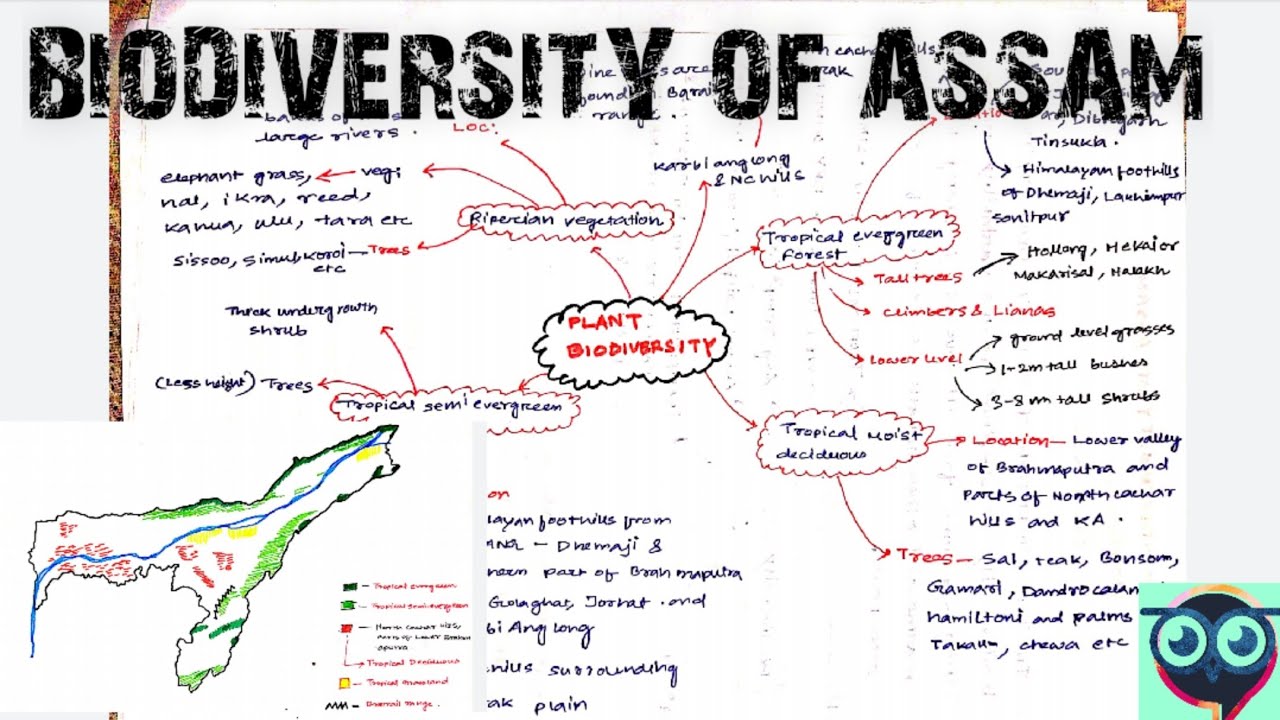 BIODIVERSITY OF ASSAM
large rivers.
LOC:
elephant grass,
vegi
nal, ikra, reed,
kanua, ulu, tara etc
Sissoo, Simul, Koroi
Trees
etc
Ripercian vegetation
range.
Karbi anglong
& NC hills
Tropical evergreen
forest
Tinsukia.
Himalayan foothills
of Dhemaji, Lakhimpur
sonitpur
Tall trees
Hollong, Mekai or
Makarisal, Nahakh
climbers & Lianas
Lower level
ground level grasses
1-2m tall bushes
3-8 m tall shrubs
PLANT
BIODIVERSITY
Thick undergrowth
shrub
(Less height) Trees
Tropical semi evergreen
Tropical Moist
deciduous
Location - Lower valley
of Brahmaputra and
parts of North cachar
hills and KA.
Trees - Sal, teak, Bonsom,
Gamari,
hamiltoni and palms
chewa etc
on
foothills from
Dhemaji &
part of Brahmaputra
Golaghat, Jorhat. and
bi Anglong
surrounding
plain
Tropical evergreen
Tropical semi evergreen
North cachar Hills,
parts of Lower Brahm
aputra
Tropical Deciduous
Tropical Grassland
Barrail range.